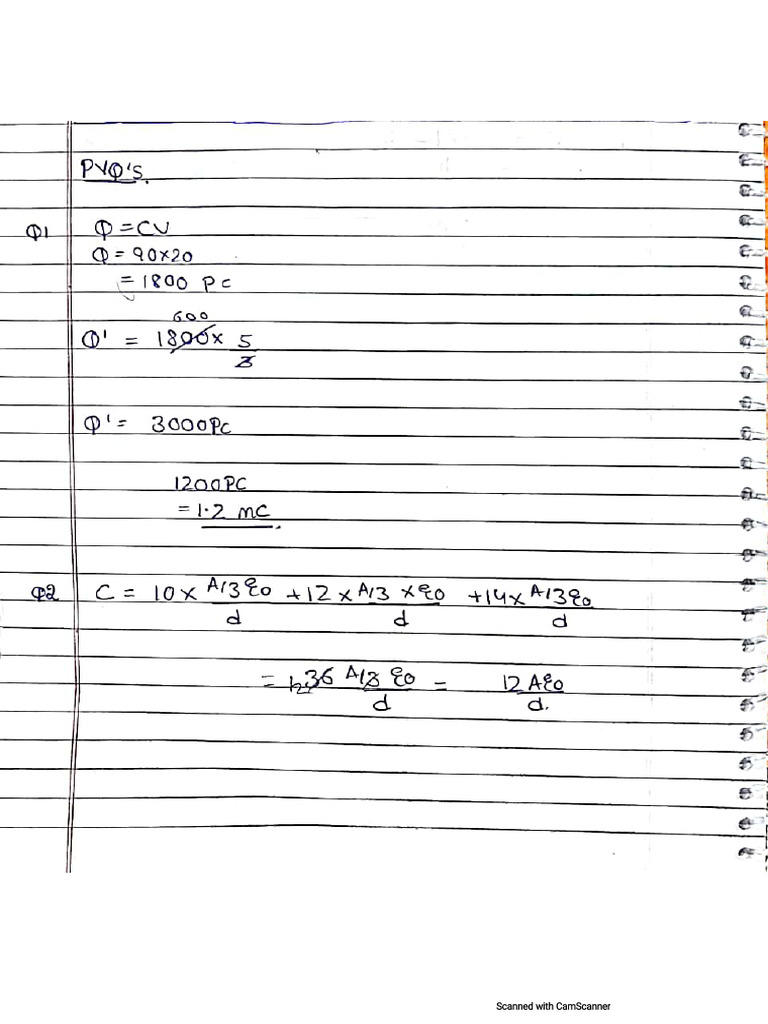 PYQ'S.
Q1 Q = CV
Q = 90×20
= 1800 PC
600
Q' = 1800 × 5/3
Q' = 3000PC
1200PC
= 1.2 mC
Q2 C = 10 × A/3 ε0/d + 12 × A/3 × ε0/d + 14 × A/3 ε0/d
= 12 36 A/3 ε0/d = 12 Aε0/d.
Scanned with CamScanner